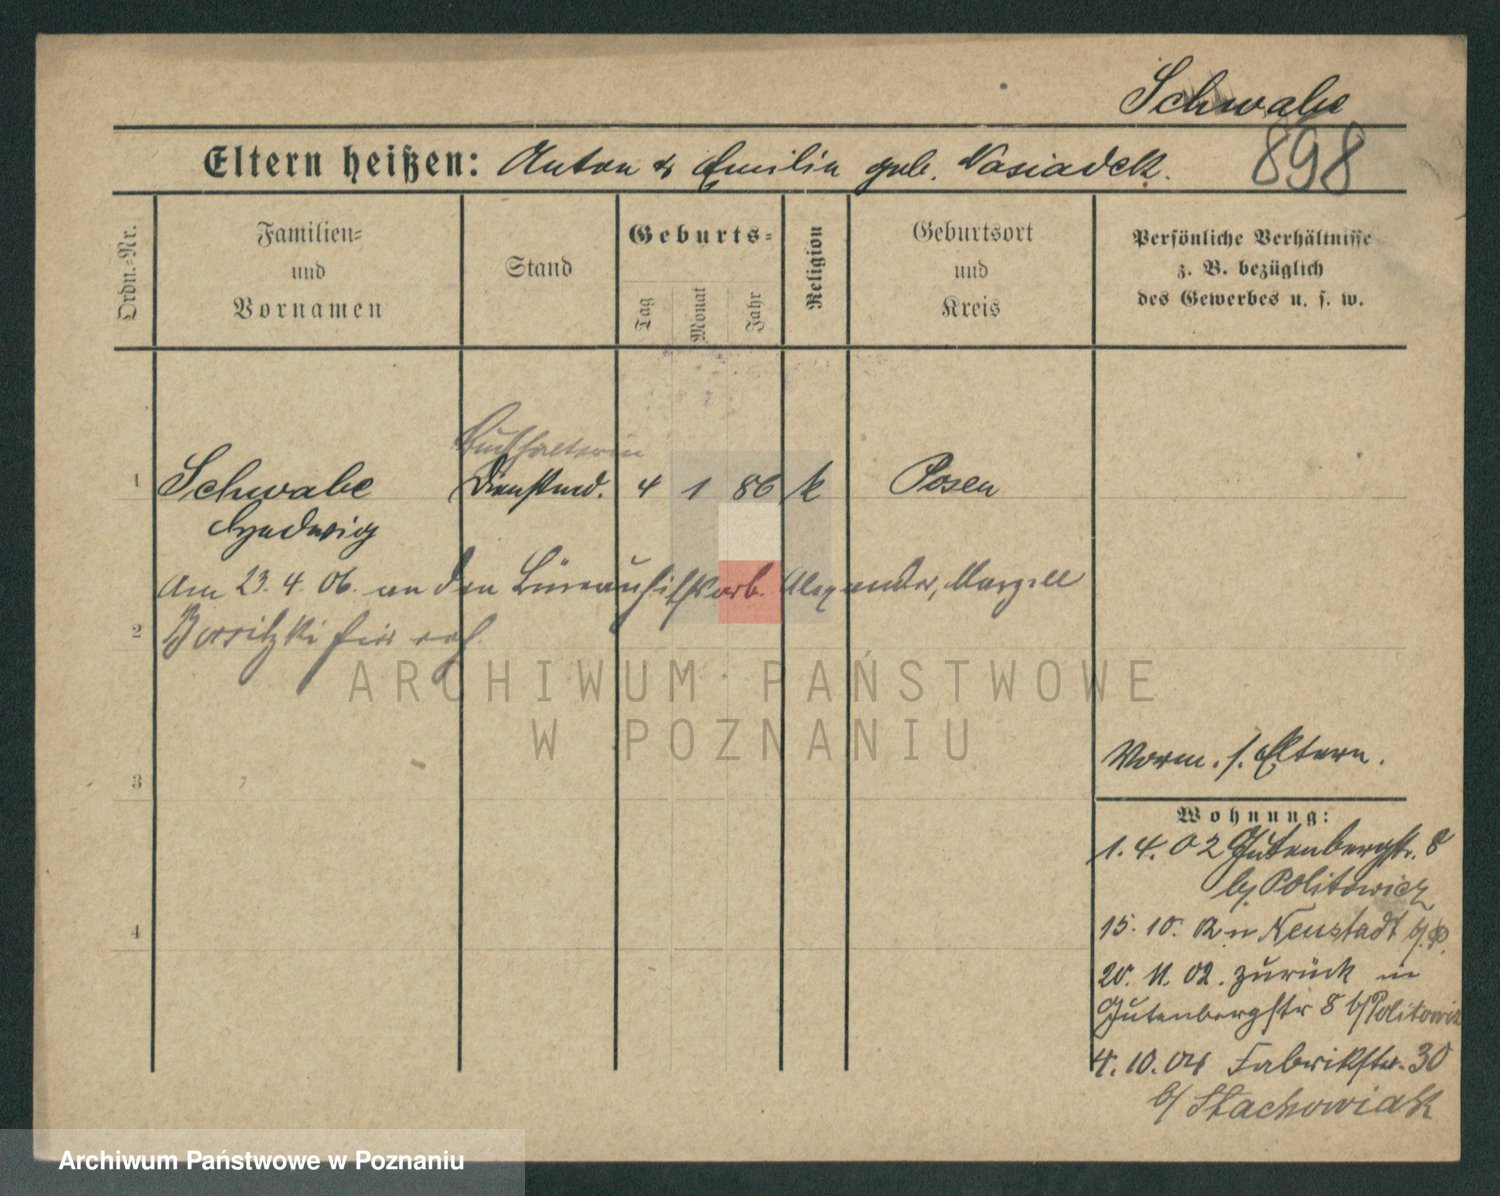 Schwabe
Eltern heißen: Anton & Emilie geb. Nasiadek.
898
Ordn.-Nr.
Familien-
und
Vornamen
Stand
Geburts-
Tag
Monat
Jahr
Religion
Geburtsort
und
Kreis
Persönliche Verhältnisse
z. B. bezüglich
des Gewerbes u. s. w.
Buchhalterin
1 Schwabe Dienstmd. 4 1 86 k Posen
Hedwig
Am 23. 4. 06. an den Alexander
2
3
4
Vorm. s. Eltern.
Wohnung:
1. 4. 02 Gutenbergstr. 8
b/ Politowicz
15. 10. 02 n Neustadt
20. 11. 02. zurück in
Gutenbergstr 8 b/ Politowicz
4. 10. 04 Fabrikstr. 30
b/ Stachowiak
ARCHIWUM PAŃSTWOWE
W POZNANIU
Archiwum Państwowe w Poznaniu